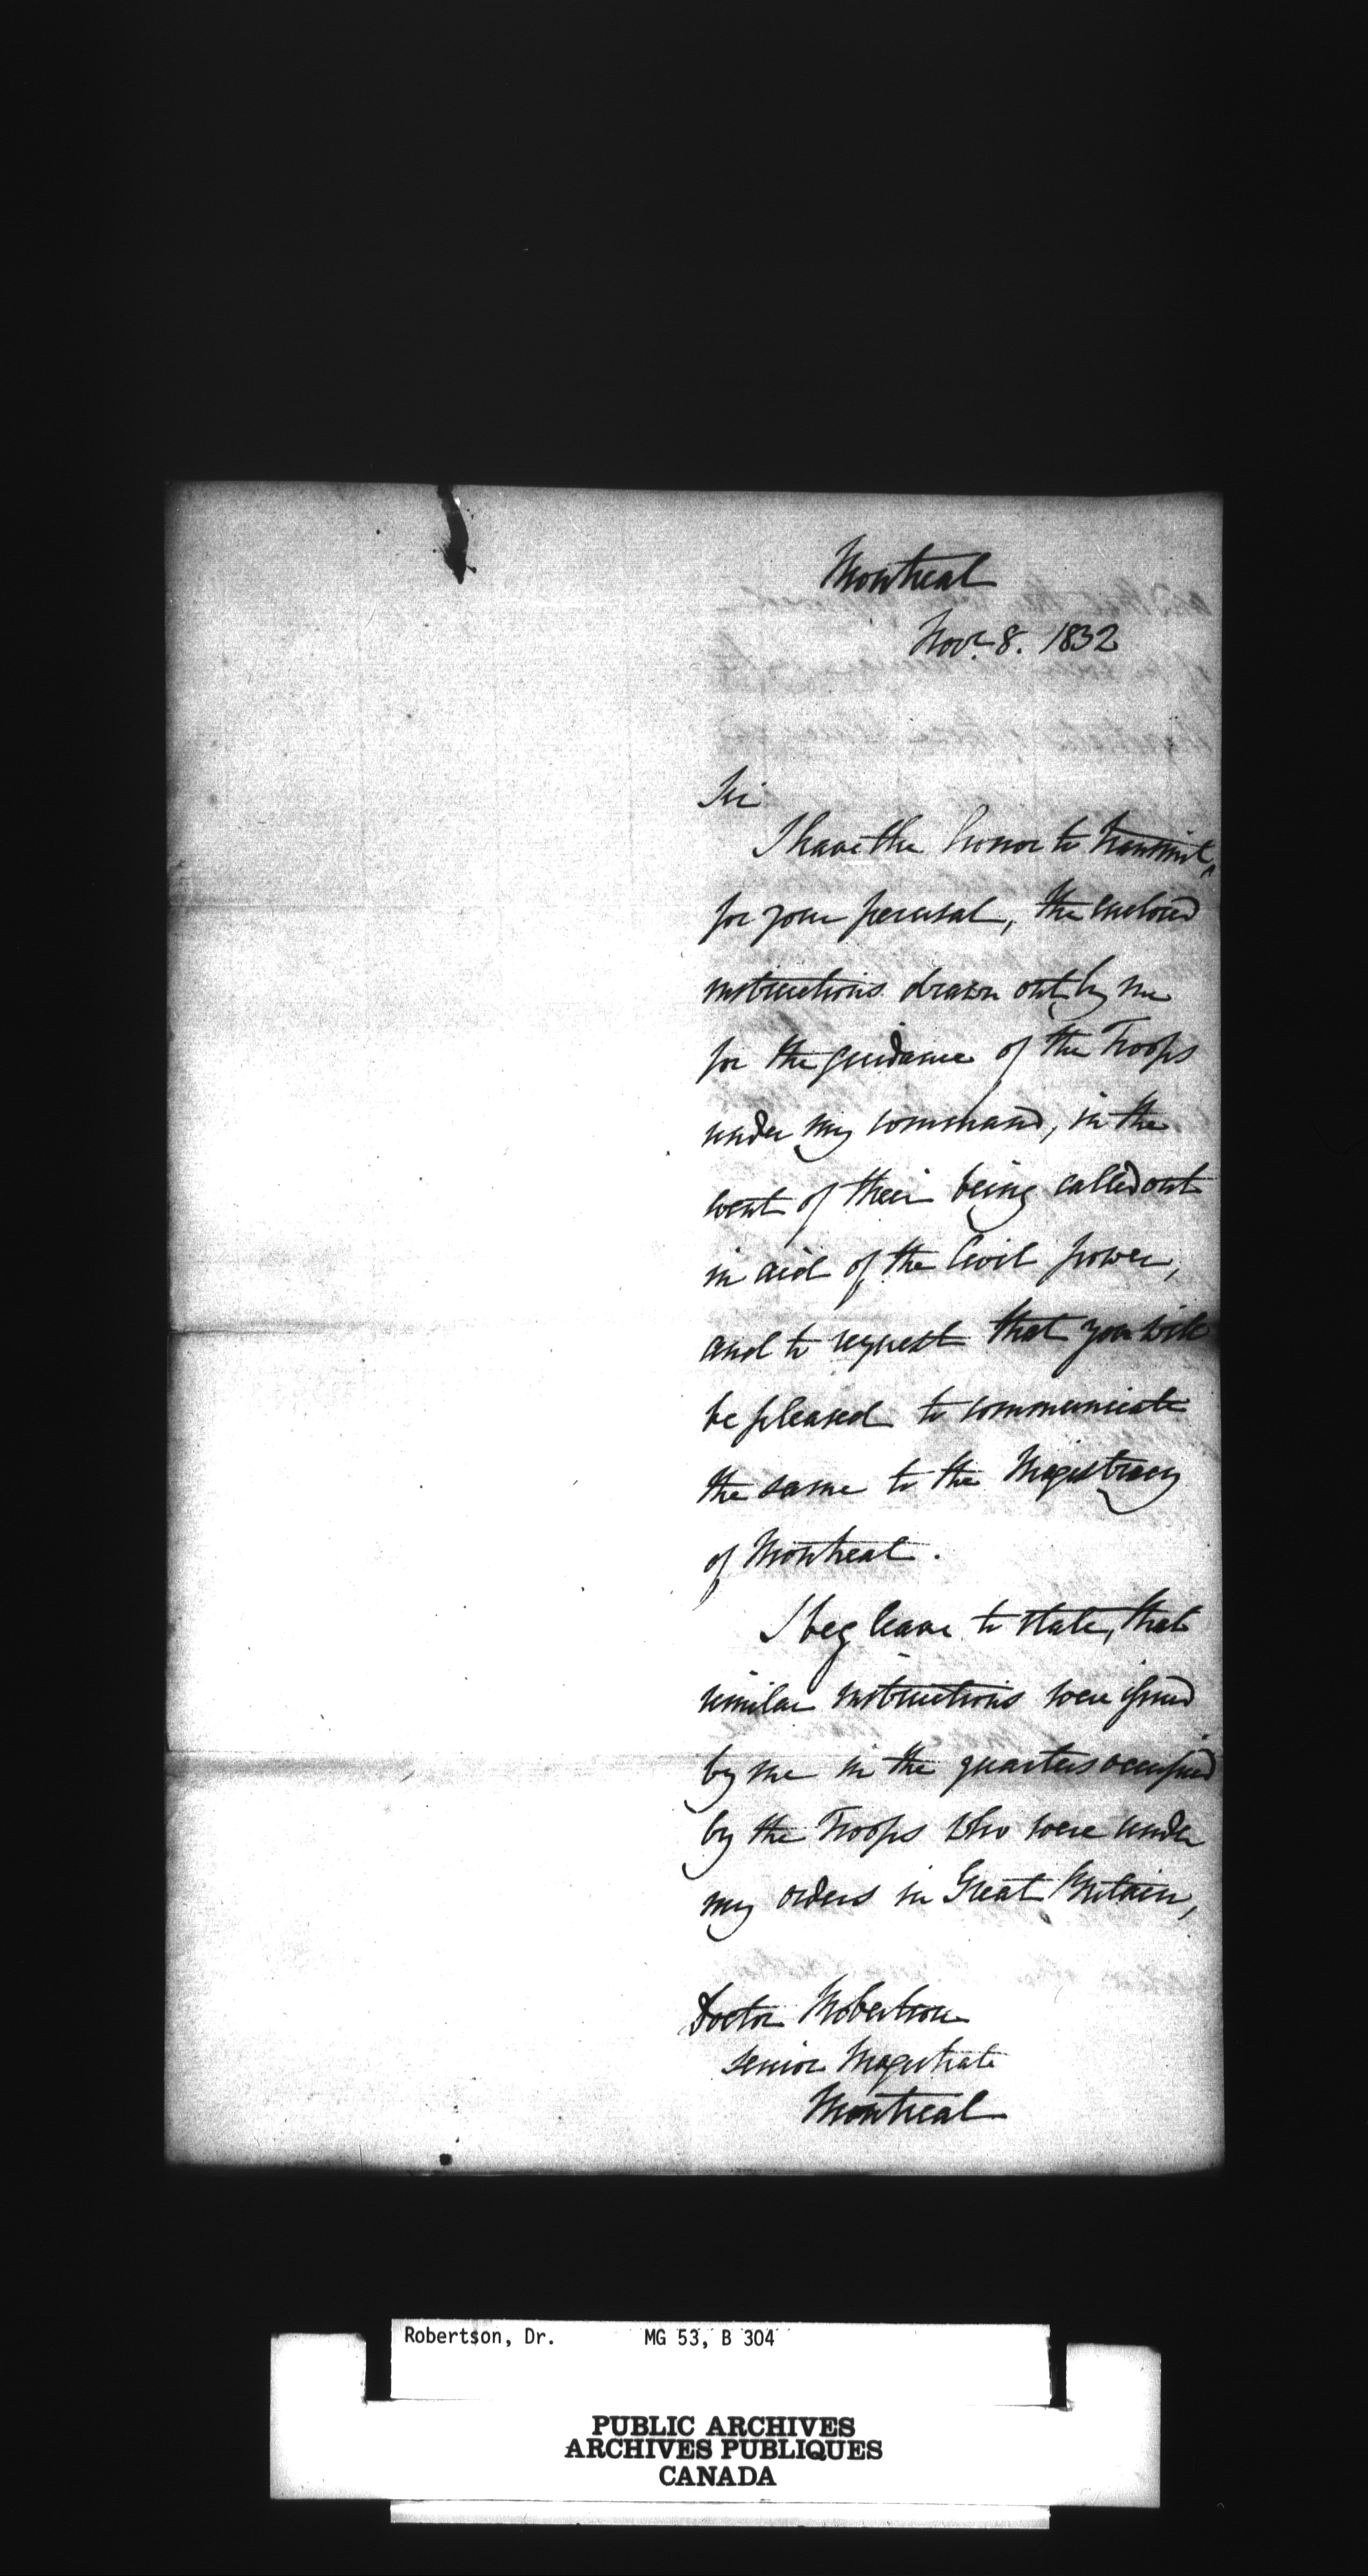 Montreal
Novr 8. 1832
Sir
I have the honor to transmit,
for your perusal, the enclosed
instructions drawn out by me
for the guidance of the Troops
under my command, in the
event of their being called out
in aid of the Civil power,
and to request that you will
be pleased to communicate
the same to the Magistracy
of Montreal.
I beg leave to state, that
similar instructions were issued
by me in the quarters occupied
by the Troops who were under
my orders in Great Britain,
Doctor Robertson
Senior Magistrate
Montreal
Robertson, Dr. MG 53, B 304
PUBLIC ARCHIVES
ARCHIVES PUBLIQUES
CANADA